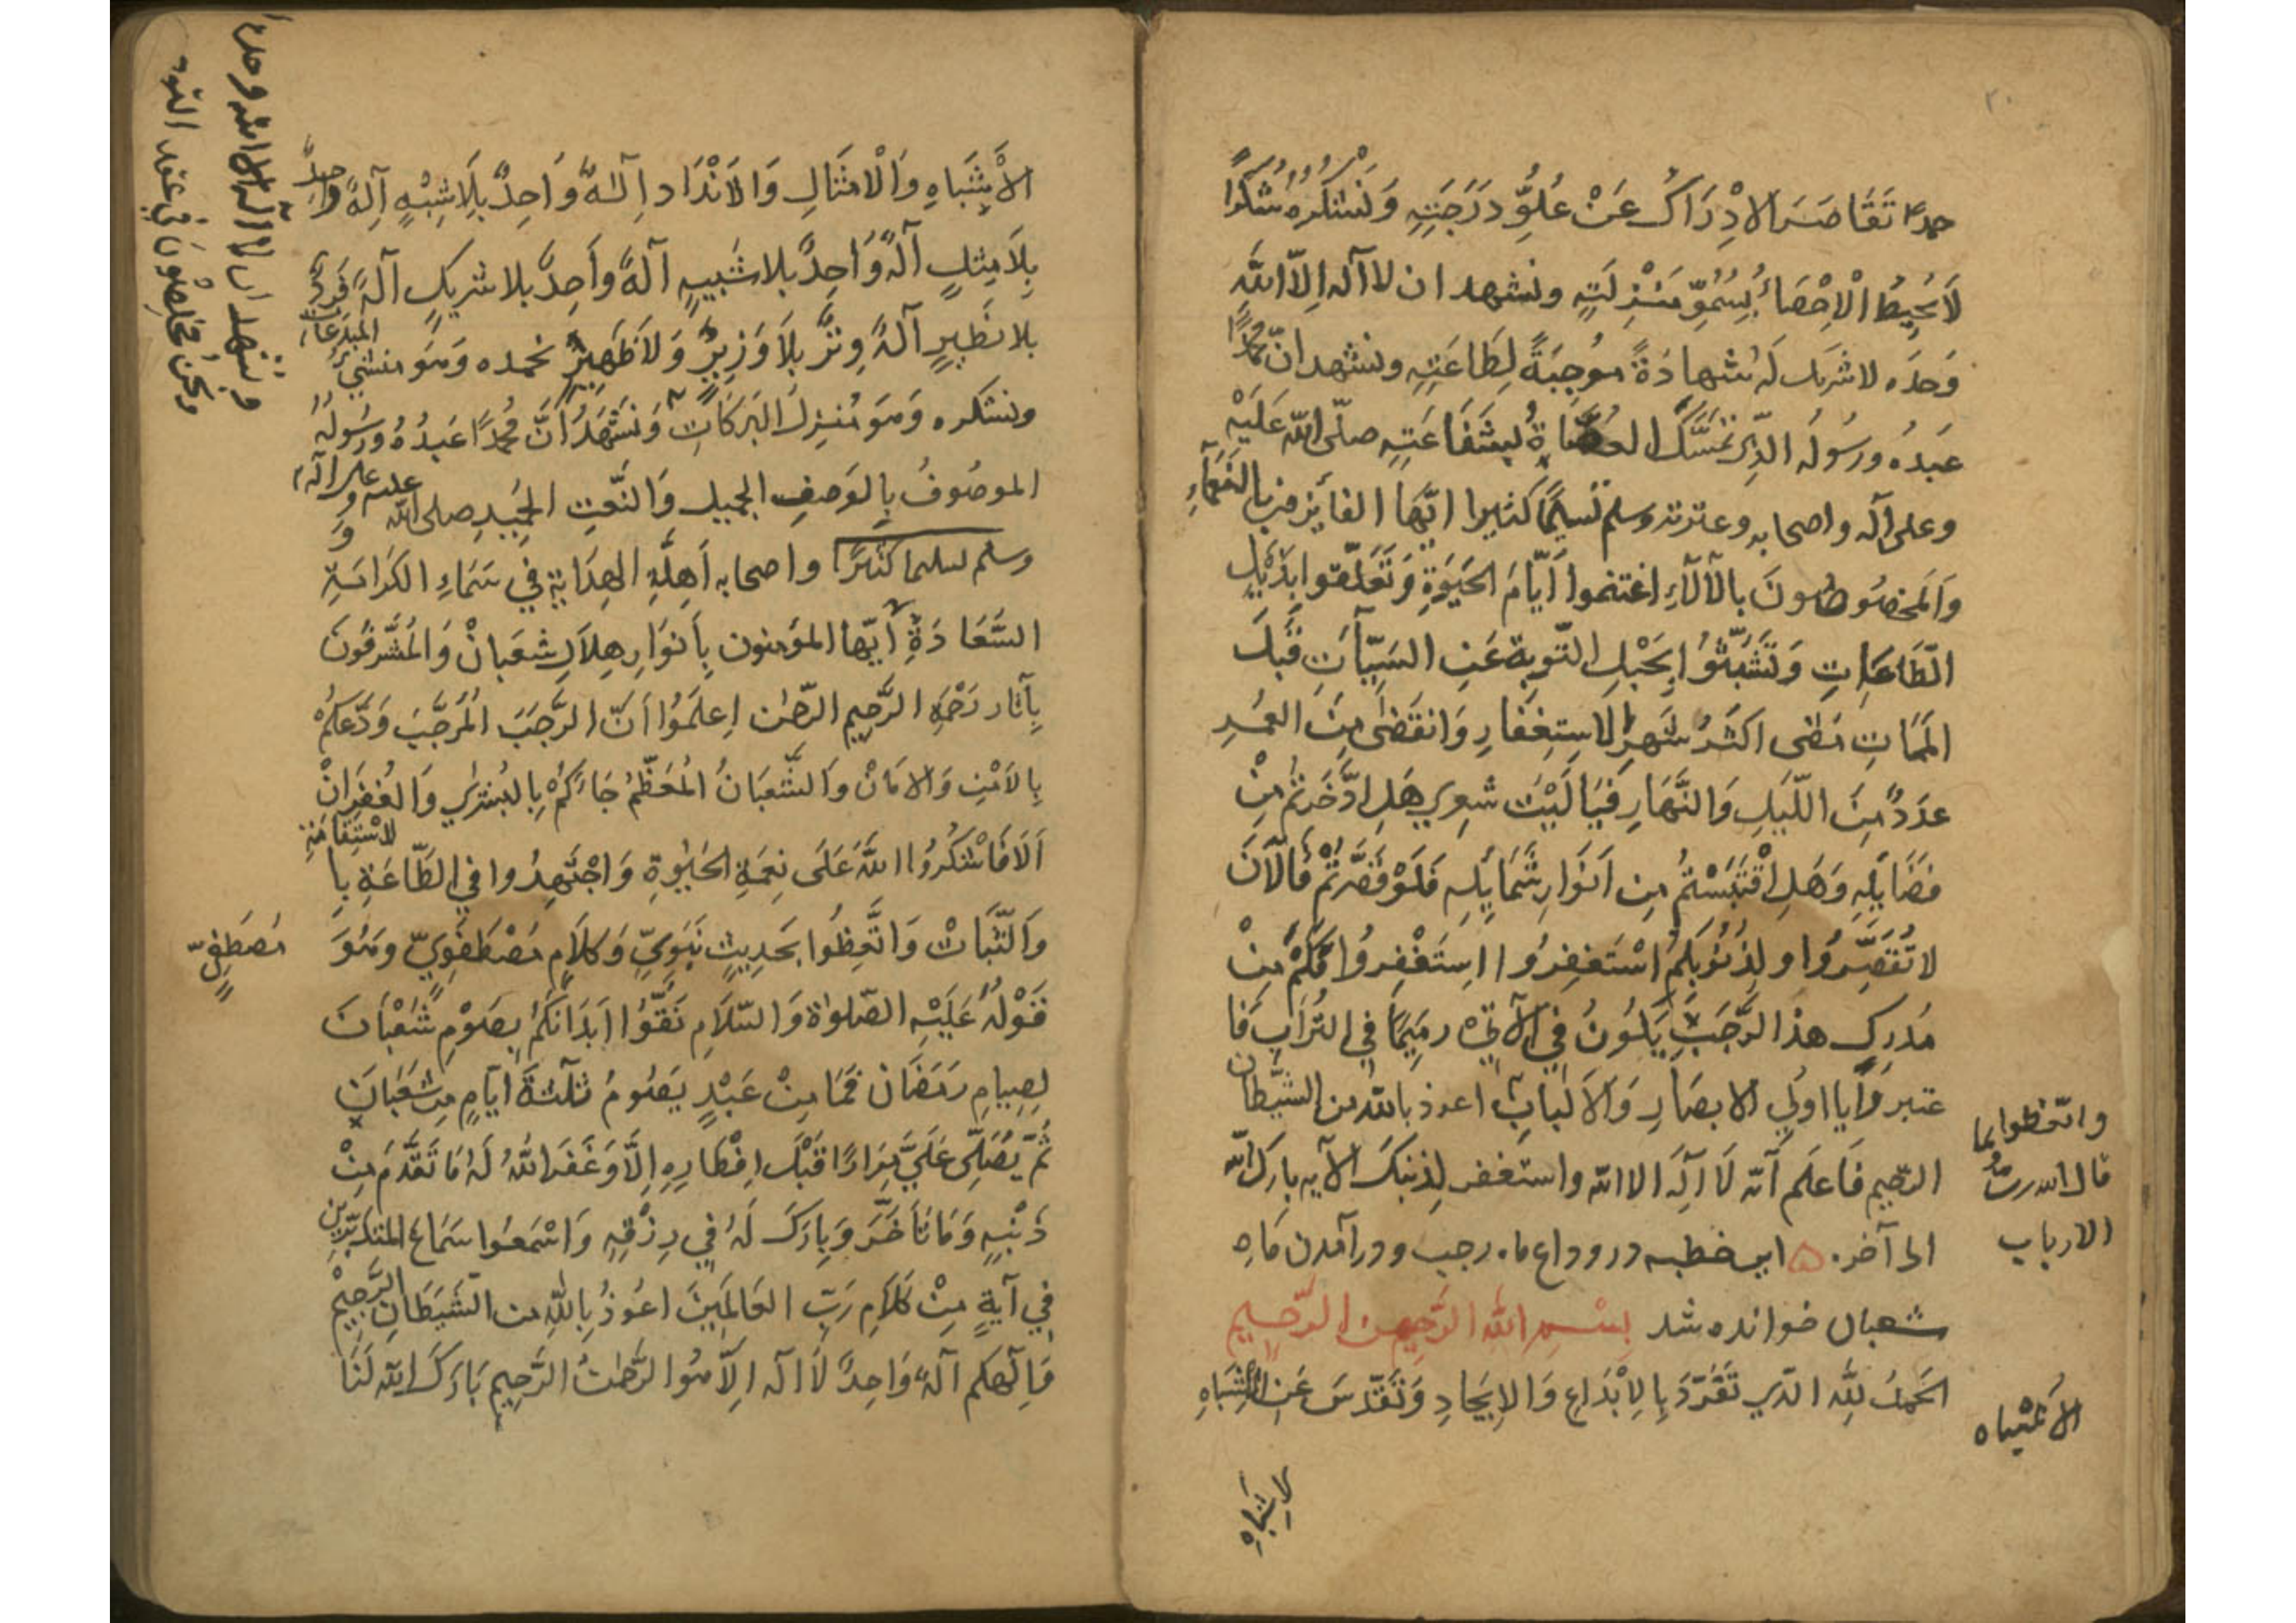 ٢٠
حمدا تَقَاصَرَ الادْرَاكُ عَنْ عُلُوِّ دَرَجَتِهِ وَنَشْكُرُهُ شُكْرًا
لَا يُحِيطُ الْاِحْصَاءُ بِسُمُوِّ مَنْزِلَتِهِ ونشهد ان لا آله اِلّا اللّٰه
وَحدَه لا شَرِيك لَه شهادَةً مُوجِبَةً لِطَاعَتِهِ ونشهد انّ محمّدًا
عَبدُه ورسُولُه الّذِى تَمَسَّكَ العُصَاةُ بِشَفَاعَتِهِ صلّى اللّٰه عَلَيْهِ
وعلى آلِه واصحابه وعترته وسلم تَسلِيمًا كثيرا ايّها الفائِزون بالنَّعمَآءِ
وَالمَخصُوصُونَ بالآلَآءِ اغتنموا اَيّامَ الحَيٰوةِ وَتَعَلّقوا بِذَيلِ
الطّاعَاتِ وَتَشَبّثُوُا بِحَبْلِ التّوبة عَنِ السّيّأتِ قَبلَ
المَمَاتِ مَضٰى اكثَرُ شَهرِ الاستِغفَارِ وَانقَضٰى مِنَ العُمرِ
عَدَدٌ مِنَ اللّيَلِ وَالنَّهَارِ فَيَا لَيْتَ شِعرِي هَلِ ادَّخَرتُم مِنْ
فَضَايِلِهِ وَهَلِ اقْتَبَسْتُم مِن اَنوَارِ شَمَايِلِهِ فَلَوْ قَصَّرتُم فَالآنَ
لا تُقَصِّرُوا ولِذُنُوبِكم اسْتَغفِرُوا استَغْفِرُوا فَكَم مِنْ
مُدرِكِ هذا الرَّجَبِ يَكُونُ فِي الآتِي رَمِيمًا فِي التُرَابِ فَا
عتبروا يا اولِي الابصَارِ وَالاَلبَابِ اعوذ باللّٰه من الشّيطان
الرّجيم فَاعلَم اَنّه لَا آلٰهَ الا اللّٰه واستغفر لِذنبكَ الآيه بارك اللّٰه
الى آخره اين خطبه در وداع ماه رجب ودر آمدن مَاهِ
شعبان خوانده شد بِسْمِ اللّٰهِ الرَّحمٰنِ الرَّحِيمِ
الحَمدُ لِلّٰهِ الّذي تَفَرّدَ بِالاِبْدَاعِ وَالاِيجَادِ وَتَقَدّسَ عَنِ الاَشبَاهِ
واتّعظوا بما
قال اللّٰه ربُّ
الارباب
الاَشْباه
الاَشْبَاهِ وَالْامثَالِ وَالاَنْدَاد اِلٰهٌ وَاحِدٌ بِلَا شِبْهٍ آِلهٌ وَاحِدٌ
بِلَا مِثلٍ آلهٌ وَاحِدٌ بلا شَبِيهٍ آلهٌ وَاَحِدٌ بلا شريكٍ آلهٌ فَردٌ
بلا نَظِيرٍ آلهٌ وِترٌ بِلَا وَزِيرٍ وَلَا ظَهِيرٍ نحمده وَهو منشئُ المبدَعَات
ونشكره وَهو مُنزِلُ البَرَكَاتِ وَنَشْهَدُ اَنَّ مُحمّدًا عَبدُهُ ورَسُولُهُ
الموصُوفُ بِالوَصفِ الجميل وَالنَّعتِ الحَمِيدِ صلى اللّٰه عليه وعلى آله
وسلم تسليما كثيرًا واصحابه اَهِلّةِ الهِدَايةِ فِي سَمَاءِ الكَرَامَةِ و
السَّعَادَةِ اَيّها المؤمنون بِاَنوَارِ هِلَالِ شَعبَانْ وَالمُشَرّفُونَ
بِآثار رَحْمَةِ الرَّحِيمِ الرّحمٰن اِعلَمُوا اَنّ الرَّجَبَ المُرَجَّبَ وَدّعكُمْ
بِالاَمْنِ وَالامَانْ وَالشَّعبَانُ المُعَظَّمُ جَاءَكُم بِالبُشرٰي وَالغُفرَانْ
اَلَا فَاشْكُرُوا اللّٰهَ عَلَى نِعمَةِ الحَيٰوةِ وَاجْتَهِدُوا في الطّاعَةِ بِالاسْتِقَامَةِ
وَالثّبَاتْ وَاتَّعِظُوا بحَدِيثٍ نَبَوِيٍّ وَكَلَامٍ مُصْطَفَوِيّ وَهُوَ
مُصطَفَوِيّ
قَوْلُهُ عَلَيْهِ الصّلوٰة وَالسّلَامِ نَقّوُا اَبدَانَكُم بِصَوْمِ شَعْبَانَ
لِصِيامِ رَمَضَان فَمَا مِنْ عَبْدٍ يَصُومُ ثلٰثةَ اَيّامٍ مِن شَعبَانَ
ثُمّ يُصَلّى عَلَيَّ مِرَارًا قَبْلَ اِفْطَارِهِ اِلّا وَغَفَرَ اللّٰهُ لَهُ مَا تَقَدَّمَ مِنْ
ذَنْبِهِ وَمَا تَأخَّرَ وَبارَكَ لَهُ فِي رِزْقِهِ وَاسْمَعُوا سَمَاعَ المتدبّرين
فِي آيةٍ مِنْ كَلَامِ رَبّ العَالَمِينَ اعُوذُ بِاللّٰهِ من الشّيطَانِ الرَّجِيمْ
وَاِلٰهكم آلهٌ وَاحِدٌ لَا اله اِلّا هُوَ الرَّحمٰنُ الرَّحِيم بَارَكَ اللّٰه لَنَا
ونشهد ان لا آله الا اللّٰه وحده
ونحن مُخلِصُونَ في